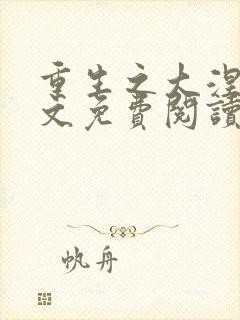 重生之大涅
文免費閱讀
帆舟